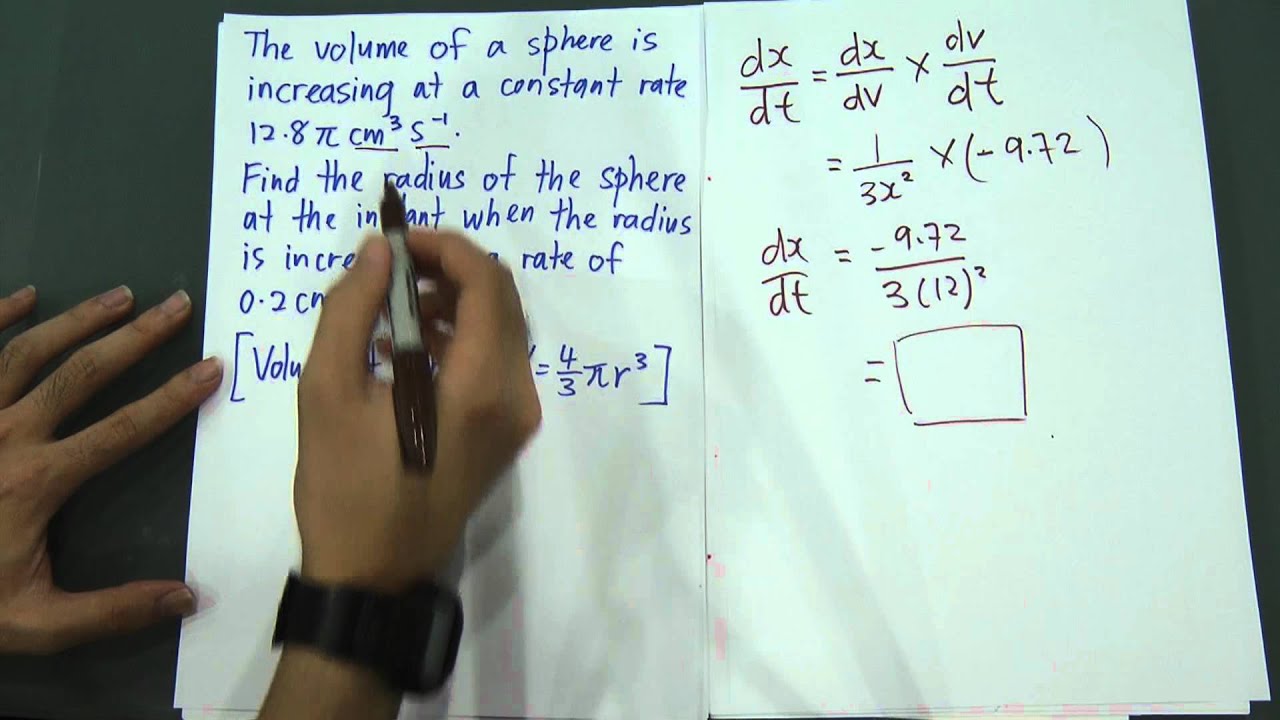 The volume of a sphere is
increasing at a constant rate
12.8π cm³ s⁻¹.
Find the radius of the sphere
at the in ant when the radius
is incre rate of
0.2 cm
[Volu = 4/3 πr³]
dx/dt = dx/dv × dv/dt
= 1/3x² × (-9.72)
dx/dt = -9.72/3(12)²
=